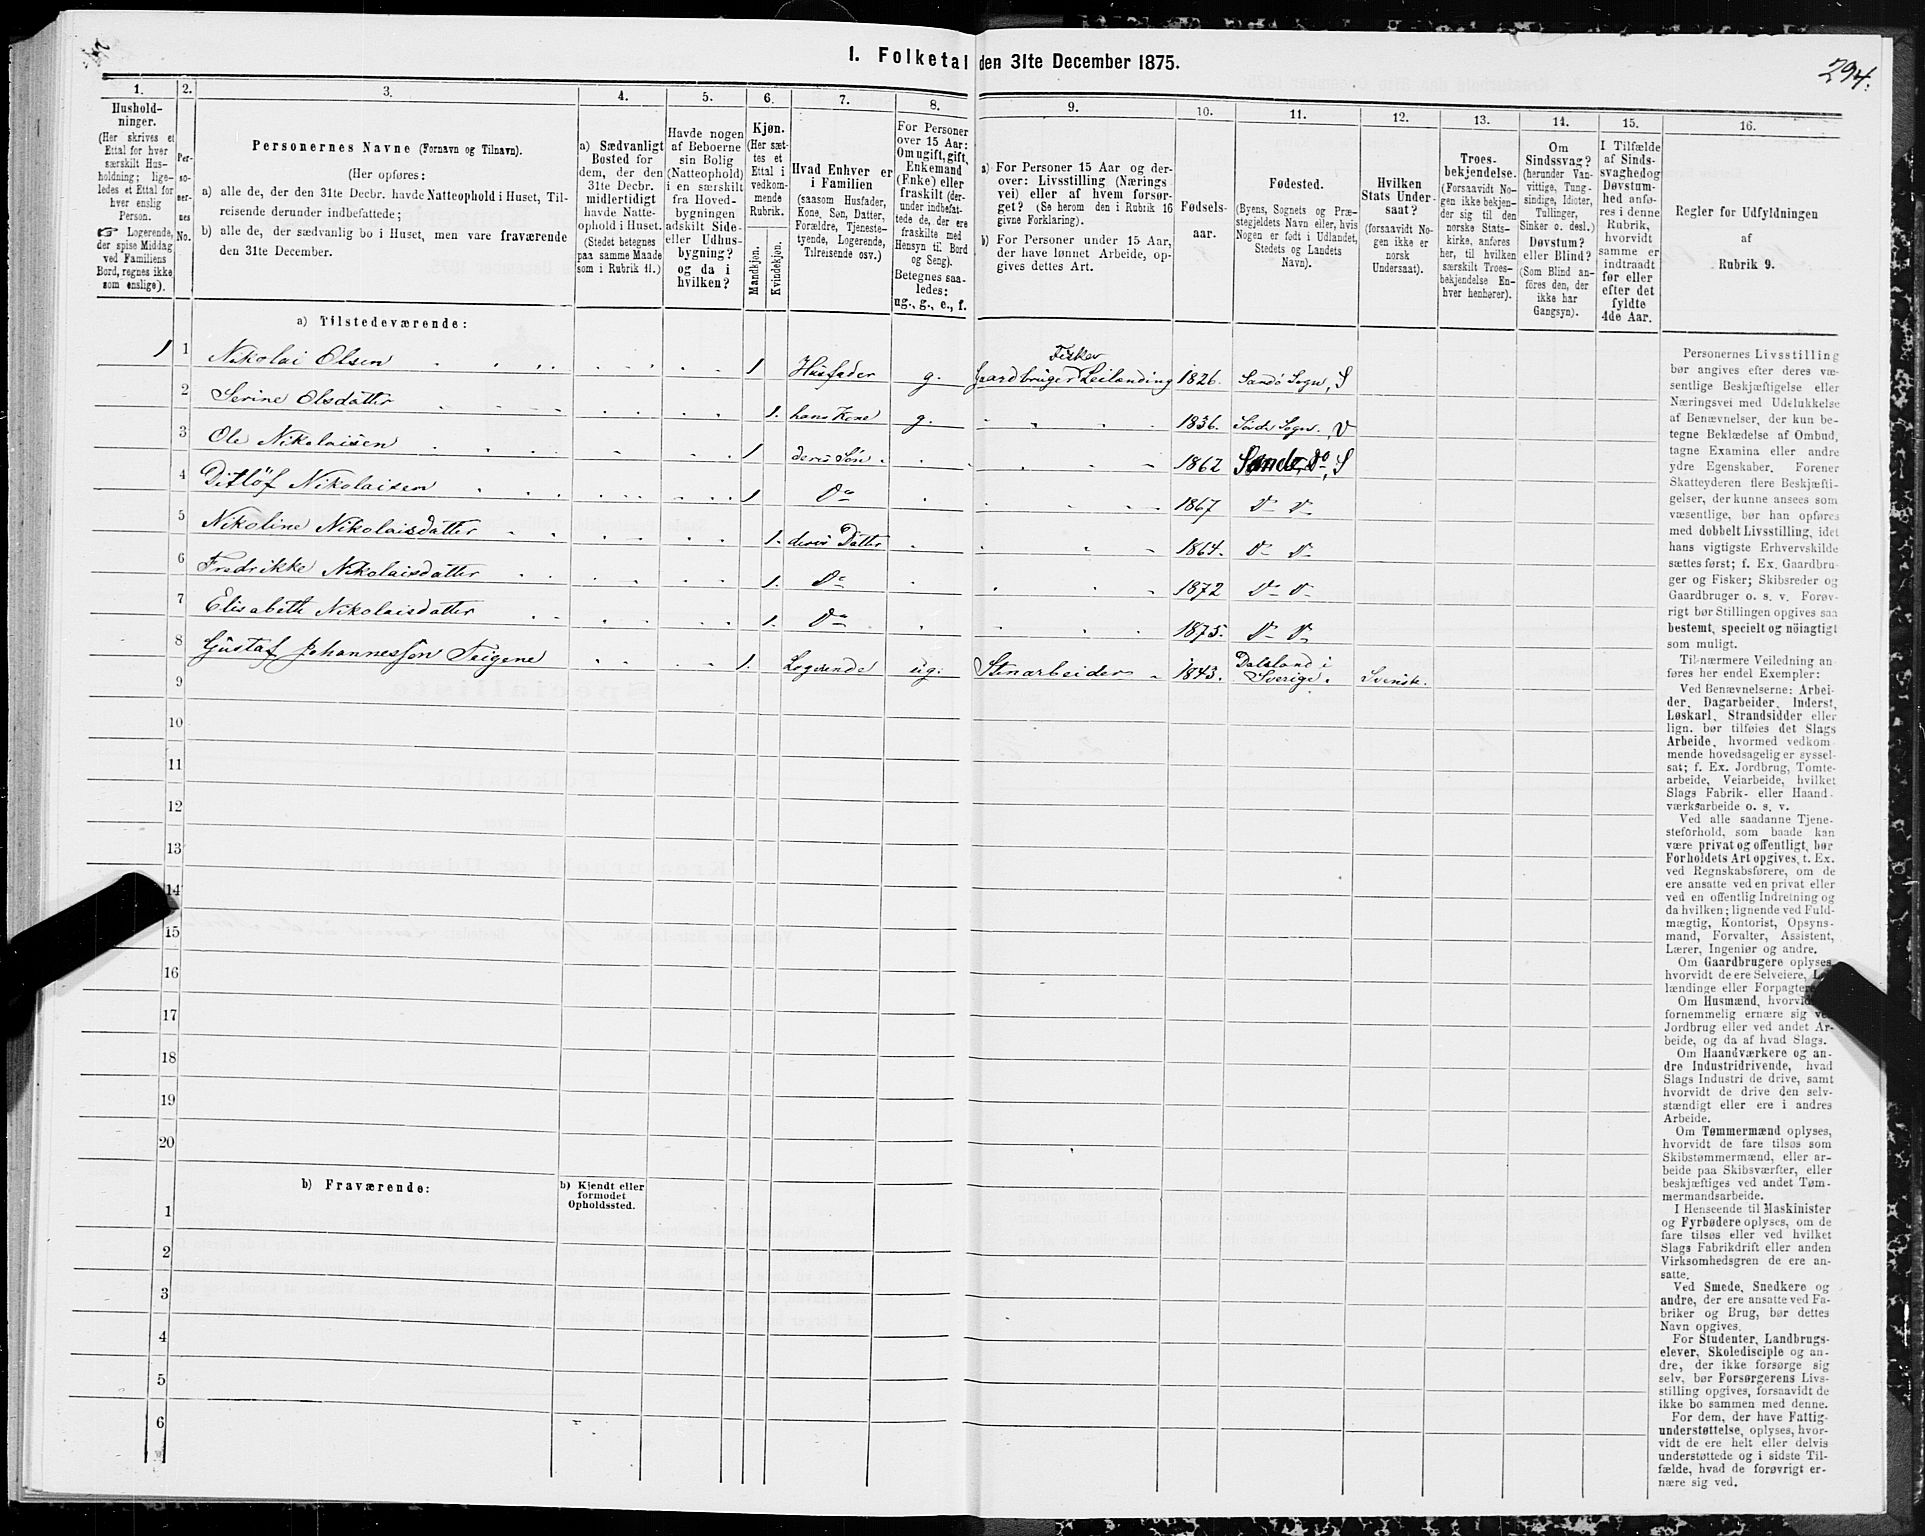 294.
1. Folketal den 31te December 1875.
1. 2. 3. 4. 5. 6. 7. 8. 9. 10. 11. 12. 13. 14. 15. 16.
Hushold-
ninger.
(Her skrives et
Ettal for hver
særskilt Hus-
holdning; lige-
ledes et Ettal for
hver enslig
Person.
☞ Logerende,
der spise Middag
ved Familiens
Bord, regnes ikke
som enslige).
Per-
so-
ner-
nes
No.
Personernes Navne (Fornavn og Tilnavn).
(Her opføres:
a) alle de, der den 31te Decbr. havde Natteophold i Huset, Til-
reisende derunder indbefattede;
b) alle de, der sædvanlig bo i Huset, men vare fraværende
den 31te December.
a) Sædvanligt
Bosted for
dem, der den
31te Decbr.
midlertidigt
havde Natte-
ophold i Huset.
(Stedet betegnes
paa samme Maade
som i Rubrik 11.)
Havde nogen
af Beboerne
sin Bolig
(Natteophold)
i en særskilt
fra Hoved-
bygningen
adskilt Side-
eller Udhus-
bygning?
og da i
hvilken?
Kjøn.
(Her sæt-
tes et
Ettal i
vedkom-
mende
Rubrik.
Mandkjøn.
Kvindekjøn.
Hvad Enhver er
i Familien
(saasom Husfader,
Kone, Søn, Datter,
Forældre, Tjeneste-
tyende, Logerende,
Tilreisende osv.)
For Personer
over 15 Aar:
Om ugift, gift,
Enkemand
(Enke) eller
fraskilt (der-
under indbefat-
tede de, der ere
fraskilte med
Hensyn til Bord
og Seng).
Betegnes saa-
ledes:
ug., g., e., f.
a) For Personer 15 Aar og der-
over: Livsstilling (Nærings
vei) eller af hvem forsør-
get? (Se herom den i Rubrik 16
givne Forklaring).
b) For Personer under 15 Aar,
der have lønnet Arbeide, op-
gives dettes Art.
Fødsels-
aar.
Fødested.
(Byens, Sognets og Præ-
stegjeldets Navn eller, hvis
Nogen er født i Udlandet,
Stedets og Landets
Navn).
Hvilken
Stats Under-
saat?
(forsaavidt No-
gen ikke er
norsk
Undersaat).
Troes-
bekjendelse.
(Forsaavidt No-
gen ikke bekjen-
der sig til den
norske Stats-
kirke, anføres
her, til hvilken
særskilt Troes-
bekjendelse En-
hver henhører).
Om
Sindssvag?
(herunder Van-
vittige, Tung-
sindige, Idioter,
Tullinger,
Sinker o. desl.)
Døvstum?
eller Blind?
(Som Blind an-
føres den, der
ikke har
Gangsyn).
I Tilfælde
af Sinds-
svaghed og
Døvstum-
hed anfø-
res i denne
Rubrik,
hvorvidt
samme er
indtraadt
før eller
efter det
fyldte
4de Aar.
Regler for Udfyldningen
af
Rubrik 9.
a) Tilstedeværende:
1 1 Nikolai Olsen 1 Husfader g. Fisker Gaardbruger Leilænding 1826. Sandø Sogn, S
2 Serine Olsdatter 1. hans Kone g. 1836. Sogn, V
3 Ole Nikolaisen 1 deres Søn 1862 Sandø, Do, S
4 Ditløf Nikolaisen 1. Do 1867 D D
5 Nikoline Nikolaisdatter 1. deres Datter 1864. D D
6 Fredrikke Nikolaisdatter 1. Do 1872 D D
7 Elisabeth Nikolaisdatter 1. Do 1875. D D
8 Gustaf Johannesson Teigene 1. Logerende ug. Stenarbeider 1843. Dalsland i Sverige. Svensk.
9
10
11
12
13
14
15
16
17
18
19
20
b) Fraværende:
b) Kjendt eller
formodet
Opholdssted.
1
2
3
4
5
6
Personernes Livsstilling
bør angives efter deres væ-
sentlige Beskjæftigelse eller
Næringsvei med Udelukkelse
af Benævnelser, der kun be-
tegne Beklædelse af Ombud,
tagne Examina eller andre
ydre Egenskaber. Forener
Skatteyderen flere Beskjæfti-
gelser, der kunne ansees som
væsentlige, bør han opføres
med dobbelt Livsstilling, idet
hans vigtigste Erhvervskilde
sættes først; f. Ex. Gaardbru-
ger og Fisker; Skibsreder og
Gaardbruger o. s. v. Forøv-
rigt bør Stillingen opgives saa
bestemt, specielt og nøiagtigt
som muligt.
Til nærmere Veiledning an-
føres her endel Exempler:
Ved Benævnelserne: Arbei-
der, Dagarbeider, Inderst,
Løskarl, Strandsidder eller
lign. bør tilføies det Slags
Arbeide, hvormed vedkom-
mende hovedsagelig er syssel-
sat; f. Ex. Jordbrug, Tomte-
arbeide, Veiarbeide, hvilket
Slags Fabrik- eller Haand-
værksarbeide o. s. v.
Ved alle saadanne Tjene-
steforhold, som baade kan
være privat og offentligt, bør
Forholdets Art opgives, t. Ex.
ved Regnskabsførere, om de
ere ansatte ved en privat eller
ved en offentlig Indretning og
da hvilken; lignende ved Fuld-
mægtig, Kontorist, Opsyns-
mand, Forvalter, Assistent,
Lærer, Ingeniør og andre.
Om Gaardbrugere oplyses,
hvorvidt de ere Selveiere, Lei-
lændinge eller Forpagtere.
Om Husmænd, hvorvidt de
fornemmelig ernære sig ved
Jordbrug eller ved andet Ar-
beide, og da af hvad Slags.
Om Haandværkere og an-
dre Industridrivende, hvad
Slags Industri de drive, samt
hvorvidt de drive den selv-
stændigt eller ere i andres
Arbeide.
Om Tømmermænd oplyses,
hvorvidt de fare tilsøs som
Skibstømmermænd, eller ar-
beide paa Skibsværfter, eller
beskjæftiges ved andet Tøm-
mermandsarbeide.
I Henseende til Maskinister
og Fyrbødere oplyses, om de
fare tilsøs eller ved hvilket
Slags Fabrikdrift eller anden
Virksomhedsgren de ere an-
satte.
Ved Smede, Snedkere og
andre, der ere ansatte ved Fa-
briker og Brug, bør dettes
Navn opgives.
For Studenter, Landbrugs-
elever, Skoledisciple og an-
dre, der ikke forsørge sig
selv, bør Forsørgerens Livs-
stilling opgives, forsaavidt de
ikke bo sammen med denne.
For dem, der have Fattig-
understøttelse, oplyses, hvor-
vidt de ere helt eller delvis
understøttede og i sidste Til-
fælde, hvad de forøvrigt er-
nære sig ved.